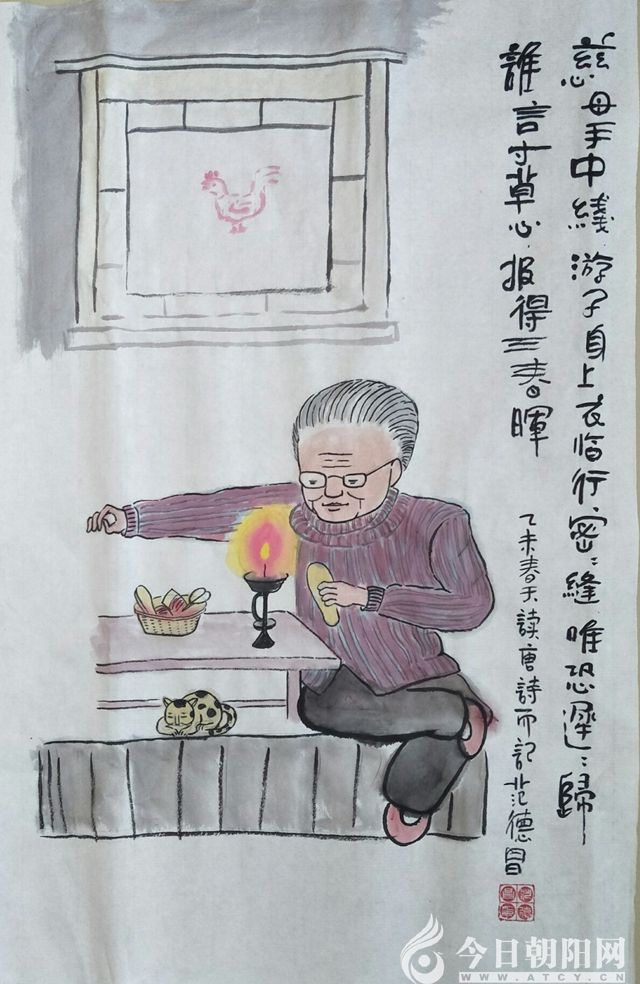 慈母手中綫 游子身上衣临行密〻縫唯恐遲〻歸
誰言寸草心 报得三春暉
乙未春天 读唐诗而记 范德
今日朝阳网
WWW.ATCY.CN